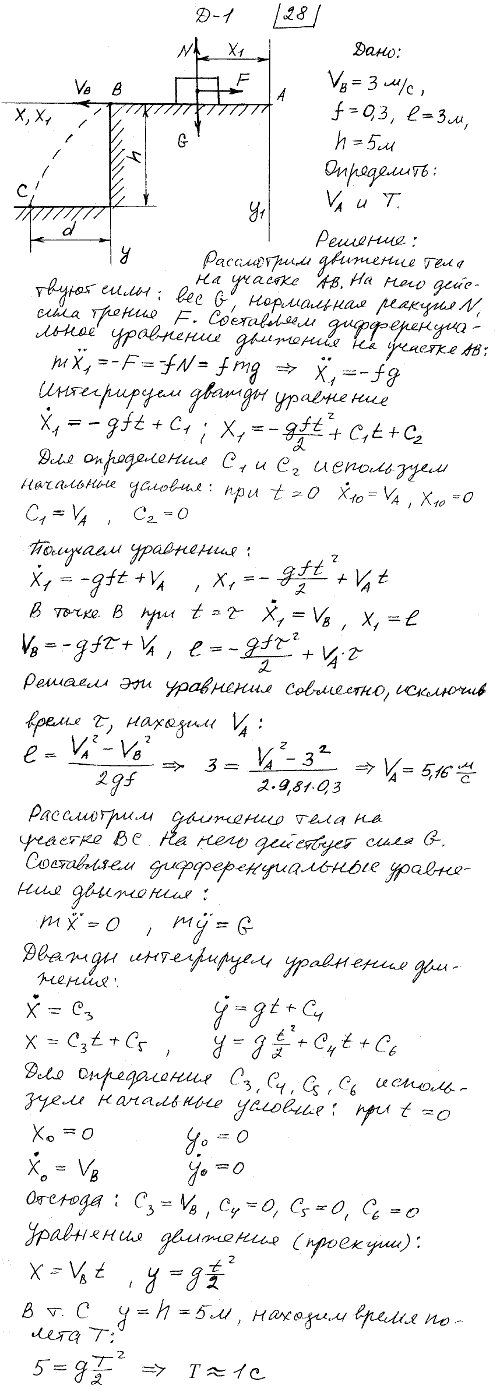 Д-1 28
N X₁ F
V_B B A
X, X₁ G
h
C
d
y y₁
Дано:
V_B = 3 м/с,
f = 0,3, ℓ = 3м,
h = 5м
Определить:
V_A и T.
Решение:
Рассмотрим движение тела
на участке AB. На него дейс-
твуют силы: вес G, нормальная реакция N,
сила трения F. Составляем дифференциа-
льное уравнение движения на участке AB:
mẍ₁ = -F = -fN = fmg ⇒ ẍ₁ = -fg
Интегрируем дважды уравнение
ẋ₁ = -gft + C₁ ; x₁ = -gft²/2 + C₁t + C₂
Для определения C₁ и C₂ используем
начальные условия: при t = 0 ẋ₁₀ = V_A, x₁₀ = 0
C₁ = V_A , C₂ = 0
Получаем уравнения:
ẋ₁ = -gft + V_A , x₁ = -gft²/2 + V_A t
В точке B при t = τ ẋ₁ = V_B , x₁ = ℓ
V_B = -gfτ + V_A , ℓ = -gfτ²/2 + V_A·τ
Решаем эти уравнения совместно, исключив
время τ, находим V_A :
ℓ = (V_A² - V_B²)/(2gf) ⇒ 3 = (V_A² - 3²)/(2·9,81·0,3) ⇒ V_A = 5,16 м/с
Рассмотрим движение тела на
участке BC. На него действует сила G.
Составляем дифференциальные уравне-
ния движения:
mẍ = 0 , mÿ = G
Дважды интегрируем уравнения дви-
жения:
ẋ = C₃ ẏ = gt + C₄
x = C₃t + C₅ , y = g t²/2 + C₄t + C₆
Для определения C₃, C₄, C₅, C₆ исполь-
зуем начальные условия: при t = 0
x₀ = 0 y₀ = 0
ẋ₀ = V_B ẏ₀ = 0
Отсюда: C₃ = V_B, C₄ = 0, C₅ = 0, C₆ = 0
Уравнения движения (проекции):
x = V_B t , y = g t²/2
В т. C y = h = 5м, находим время по-
лета T:
5 = g T²/2 ⇒ T ≈ 1 с